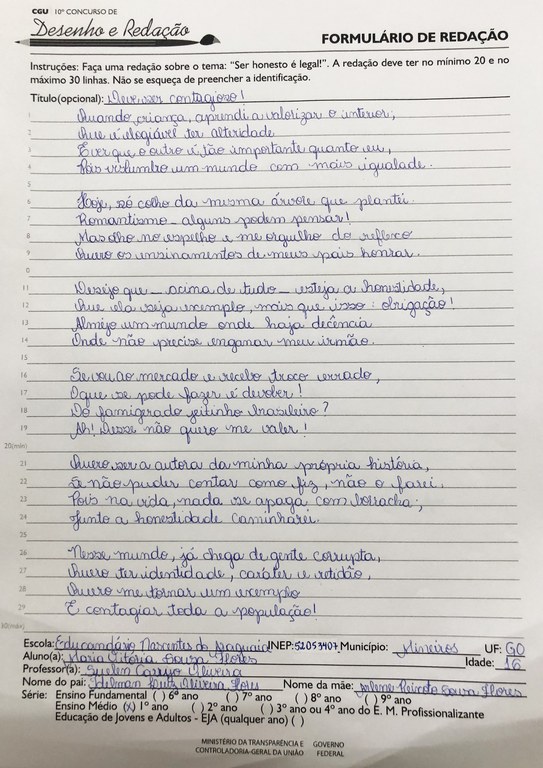 CGU 10º CONCURSO DE
Desenho e Redação
FORMULÁRIO DE REDAÇÃO
Instruções: Faça uma redação sobre o tema: "Ser honesto é legal!". A redação deve ter no mínimo 20 e no
máximo 30 linhas. Não se esqueça de preencher a identificação.
Título(opcional): Deve ser contagioso!
1 Quando criança, aprendi a valorizar o interior,
2 Que é elogiável ter alteridade
3 E ver que o outro é tão importante quanto eu,
4 Pois vislumbro um mundo com mais igualdade.
5
6 Hoje, só colho da mesma árvore que plantei.
7 Romantismo_ alguns podem pensar!
8 Mas olho no espelho e me orgulho do reflexo
9 Quero os ensinamentos de meus pais honrar.
0
11 Desejo que _ acima de tudo _ esteja a honestidade,
12 Que ela seja exemplo, mais que isso: obrigação!
13 Almejo um mundo onde haja decência
14 Onde não precise enganar meu irmão.
15
16 Se vou ao mercado e recebo troco errado,
17 O que se pode fazer é devolver!
18 Do famigerado jeitinho brasileiro?
19 Ah! Desse não quero me valer!
20(mín)
21 Quero ser a autora da minha própria história,
22 Se não puder contar como fiz, não o farei.
23 Pois na vida, nada se apaga com borracha;
24 Junto a honestidade caminharei.
25
26 Nesse mundo, já chega de gente corrupta,
27 Quero ter identidade, caráter e retidão,
28 Quero me tornar um exemplo
29 E contagiar toda a população!
30(máx)
Escola: Educandário Nascentes do Araguaia INEP: 52053407 Município: Mineiros UF: GO
Aluno(a): Maria Vitória Souza Flores Idade: 16
Professor(a): Suelen Carrijo Oliveira
Nome do pai: Oliveira Flores Nome da mãe: Souza Flores
Série: Ensino Fundamental ( ) 6º ano ( ) 7º ano ( ) 8º ano ( ) 9º ano
Ensino Médio (x) 1º ano ( ) 2º ano ( ) 3º ano ou 4º ano do E. M. Profissionalizante
Educação de Jovens e Adultos - EJA (qualquer ano) ( )
MINISTÉRIO DA TRANSPARÊNCIA E GOVERNO
CONTROLADORIA-GERAL DA UNIÃO FEDERAL